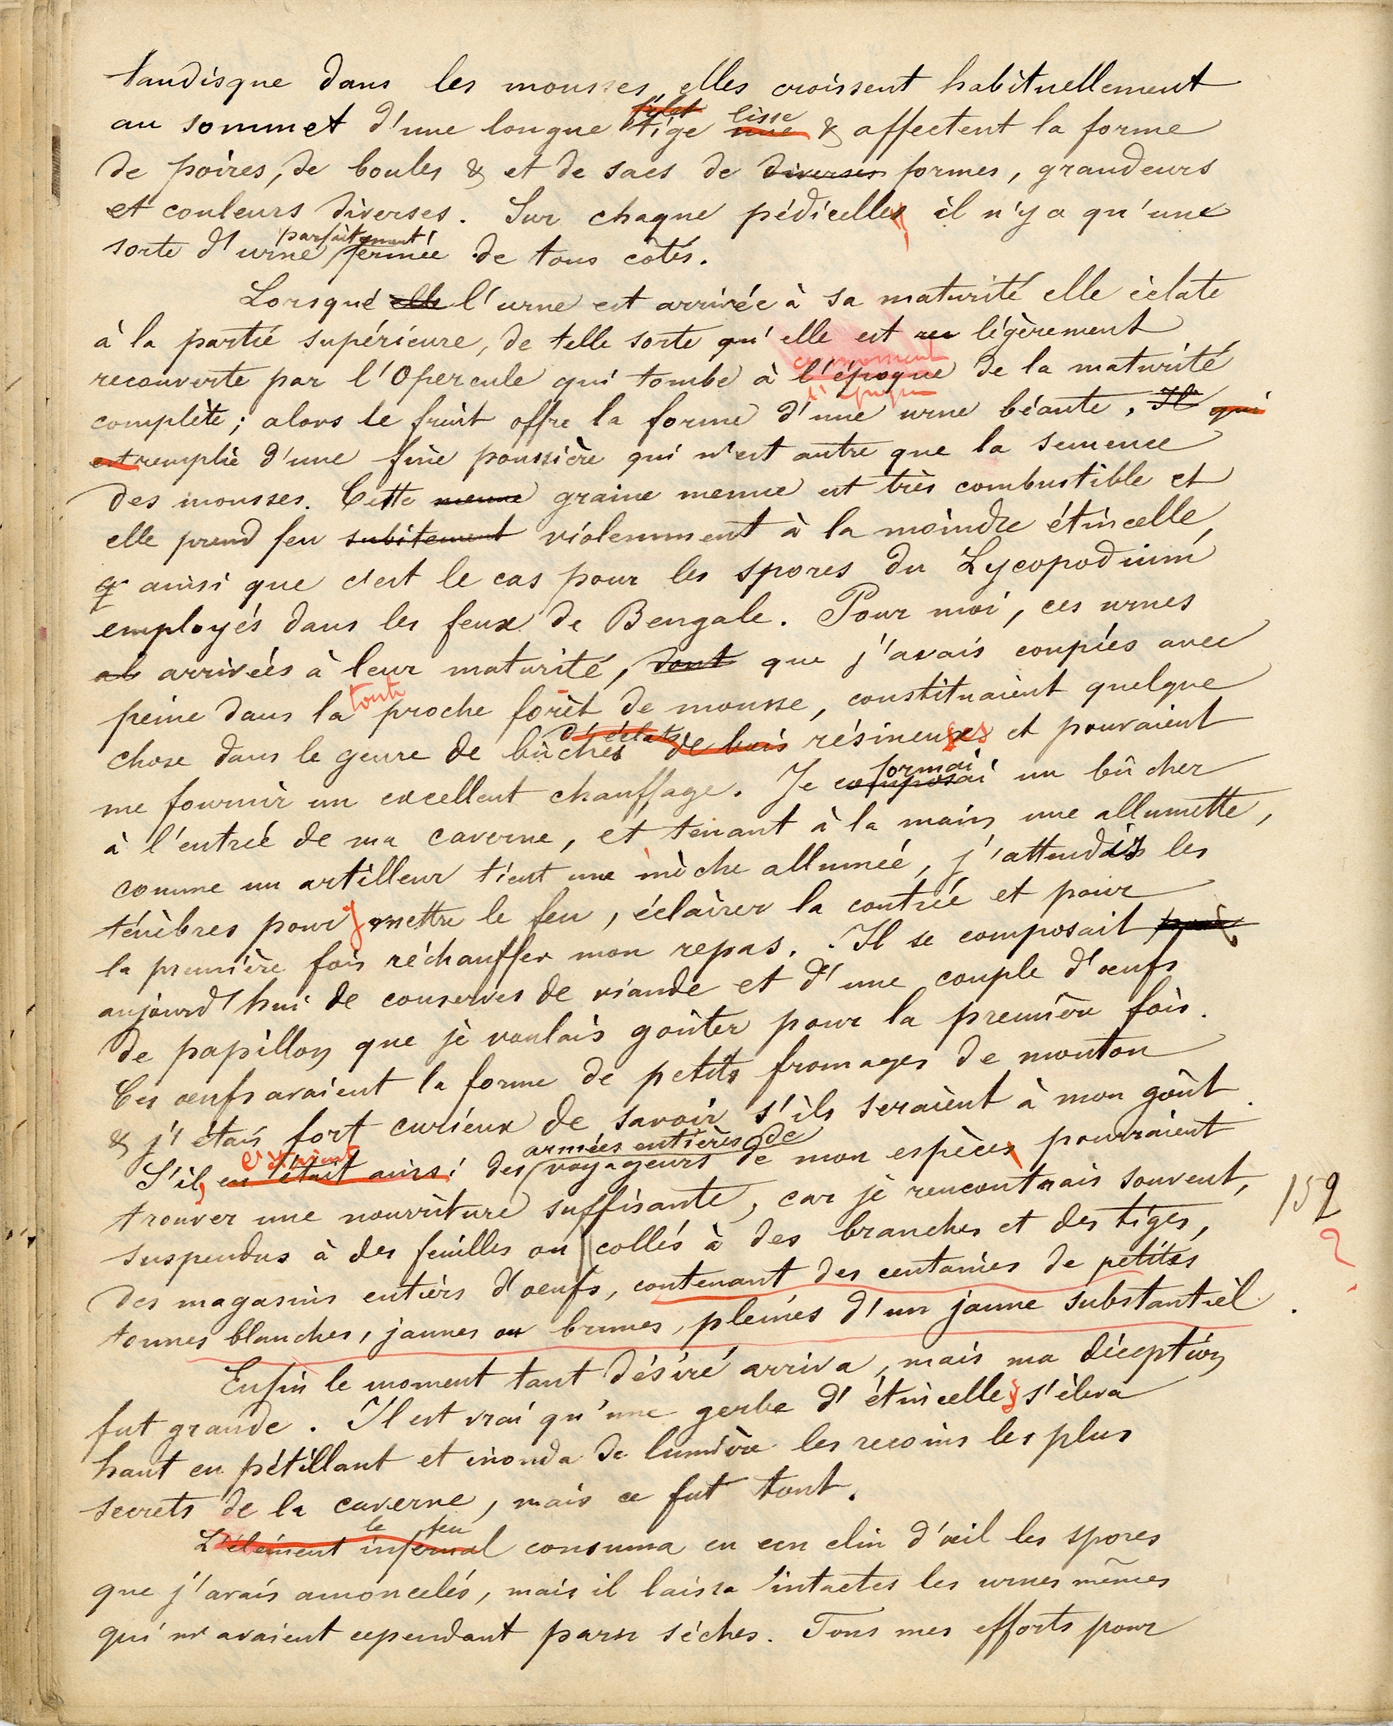 tandisque dans les mousses elles croissent habituellement
au sommet d'une longue tige lisse & affectent la forme
de poires, de boules & et de sacs de diverses formes, grandeurs
et couleurs diverses. Sur chaque pédicelle il n'y a qu'une
sorte d'urne parfaitement fermée de tous côtés.
Lorsque elle l'urne est arrivée à sa maturité elle éclate
à la partie supérieure, de telle sorte qu'elle est légèrement
recouverte par l'Opercule qui tombe à l'époque de la maturité
complète; alors le fruit offre la forme d'une urne béante, Il qui
est remplie d'une fine poussière qui n'est autre que la semence
des mousses. Cette menue graine menue est très combustible et
elle prend feu subitement violemment à la moindre étincelle,
ainsi que c'est le cas pour les spores du Lycopodium
employés dans les feux de Bengale. Pour moi, ces urnes
arrivées à leur maturité, dont que j'avais coupées avec
peine dans la toute proche forêt de mousse, constituaient quelque
chose dans le genre de bûches d'éclats de bois résineuses et pouvaient
me fournir un excellent chauffage. Je composai formai un bûcher
à l'entrée de ma caverne, et tenant à la main une allumette,
comme un artilleur tient une mèche allumée, j'attendis les
ténèbres pour y mettre le feu, éclairer la contrée et pour
la première fois réchauffer mon repas. Il se composait pour
aujourd'hui de conserves de viande et d'une couple d'œufs
de papillon que je voulais goûter pour la première fois.
Ces œufs avaient la forme de petits fromages de mouton
& j'étais fort curieux de savoir s'ils seraient à mon goût.
S'il en était ainsi des armées entières de voyageurs de mon espèce pourraient
trouver une nourriture suffisante, car je rencontrais souvent,
152
suspendus à des feuilles ou collés à des branches et des tiges,
?
des magasins entiers d'œufs, contenant des centaines de petites
tonnes blanches, jaunes ou brunes, pleines d'un jaune substantiel.
Enfin le moment tant désiré arriva, mais ma déception
fut grande. Il est vrai qu'une gerbe d'étincelles s'éleva
haut en pétillant et inonda de lumière les recoins les plus
secrets de la caverne, mais ce fut tout.
L'élément infernal le feu consuma en un clin d'œil les spores
que j'avais amoncelés, mais il laissa intactes les urnes mêmes
qui m'avaient cependant paru sèches. Tous mes efforts pour